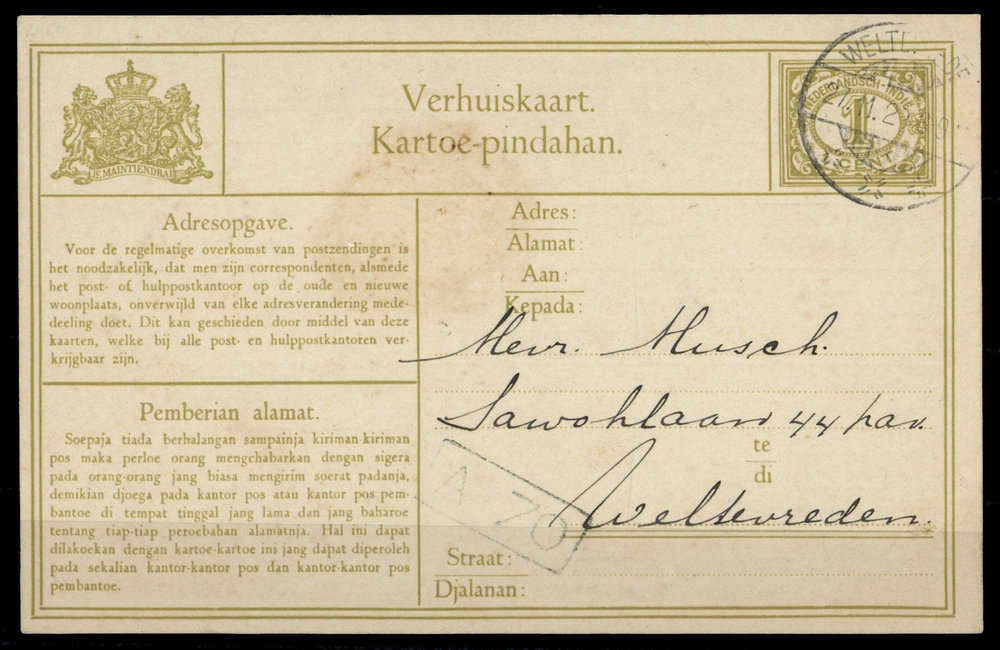 JE MAINTIENDRAI
Verhuiskaart.
Kartoe-pindahan.
NEDERLANDSCH-INDIË
1
CENT
WELT
27.11.2
Adresopgave.
Voor de regelmatige overkomst van postzendingen is
het noodzakelijk, dat men zijn correspondenten, alsmede
het post- of hulppostkantoor op de oude en nieuwe
woonplaats, onverwijld van elke adresverandering mede-
deeling doet. Dit kan geschieden door middel van deze
kaarten, welke bij alle post- en hulppostkantoren ver-
krijgbaar zijn.
Pemberian alamat.
Soepaja tiada berhalangan sampainja kiriman-kiriman
pos maka perloe orang mengchabarkan dengan sigera
pada orang-orang jang biasa mengirim soerat padanja,
demikian djoega pada kantor pos atau kantor pos pem-
bantoe di tempat tinggal jang lama dan jang baharoe
tentang tiap-tiap peroebahan alamatnja. Hal ini dapat
dilakoekan dengan kartoe-kartoe ini jang dapat diperoleh
pada sekalian kantor-kantor pos dan kantor-kantor pos
pembantoe.
Adres:
Alamat:
Aan:
Kepada:
Mevr. Musch.
Sawohlaan 44 pav.
te
di
Weltevreden.
A ZO
Straat:
Djalanan: